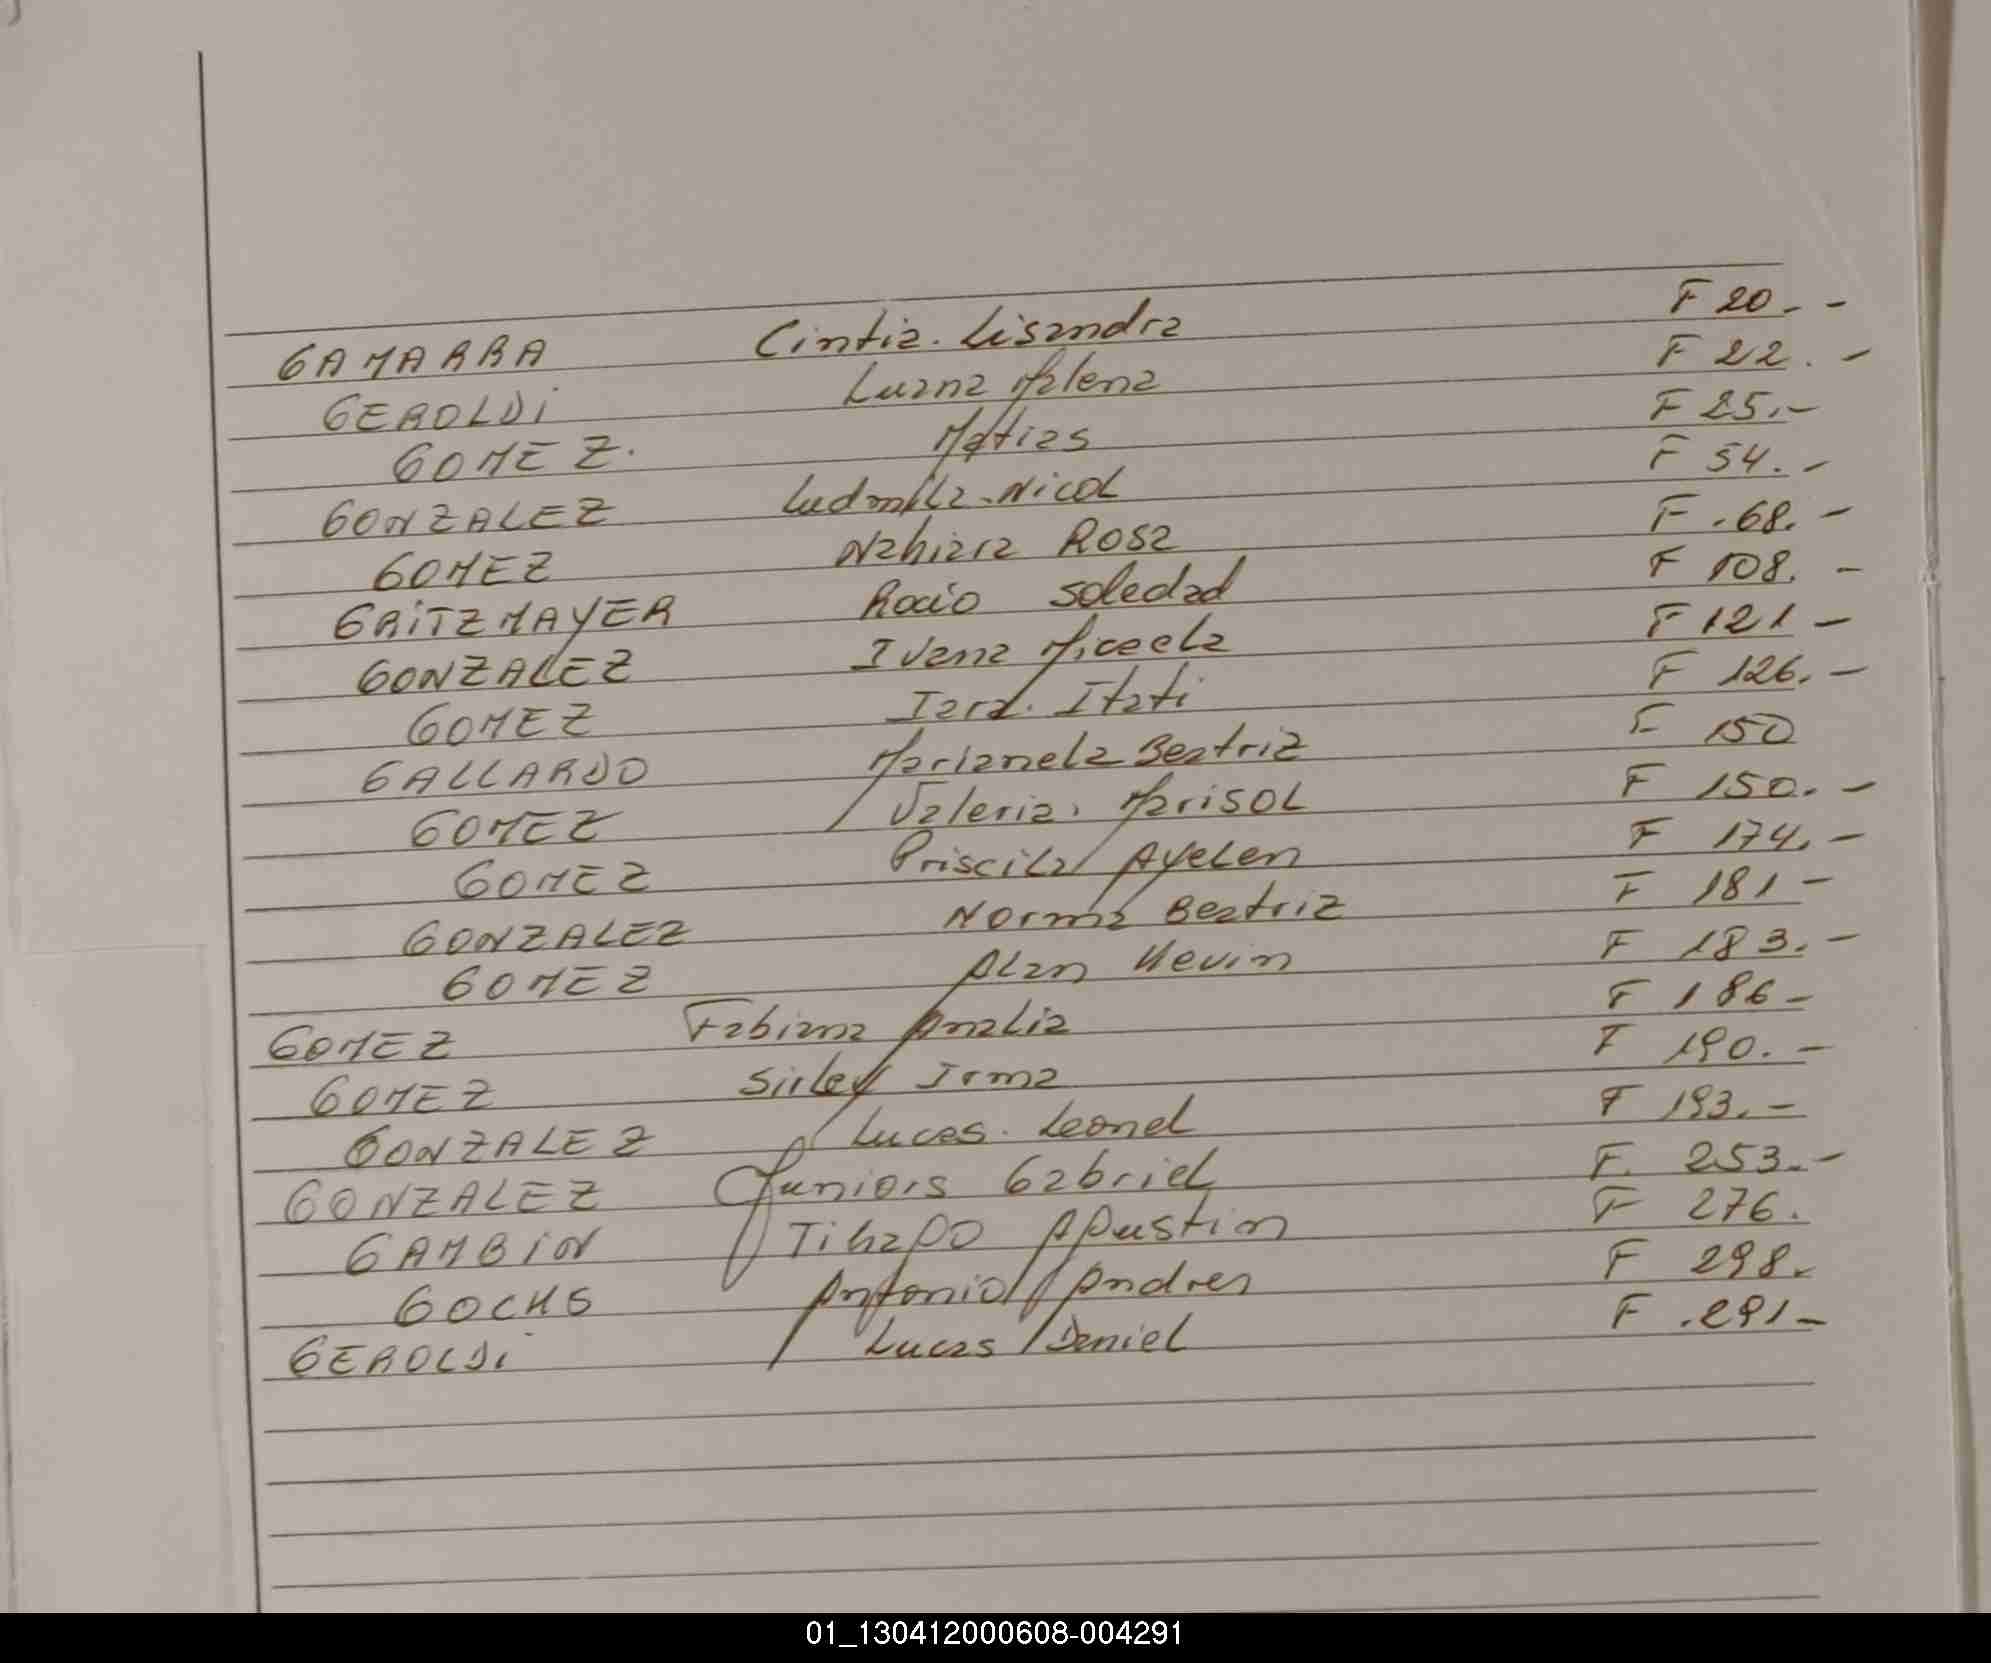 GAMARRA Cintia. Lisandra F 20. -
GEROLDi Luana Malena F 22. -
GOMEZ. Matias F 25. -
GONZALEZ Ludmila. Nicol F 54. -
GOMEZ Nahiara Rosa F. 68. -
GRiTZMAYER Rocio Soledad F 108. -
GONZALEZ Ivana Micaela F 121 -
GOMEZ Iara. Itati F 126. -
GALLARDO Marianela Beatriz F 150
GOMEZ Valeria. Marisol F 150. -
GOMEZ Priscila Ayelen F 174. -
GONZALEZ Norma Beatriz F 181 -
GOMEZ Alan Kevin F 183. -
GOMEZ Fabiana Analia F 186 -
GOMEZ Sirley Irma F 190. -
GONZALEZ Lucas. Leonel F 193. -
GONZALEZ Juniors Gabriel F. 253. -
GAMBiN Tihago Agustin F 276.
GOCHS Antonio Andres F 298.
GEROLDi Lucas Daniel F. 291 -
01_130412000608-004291